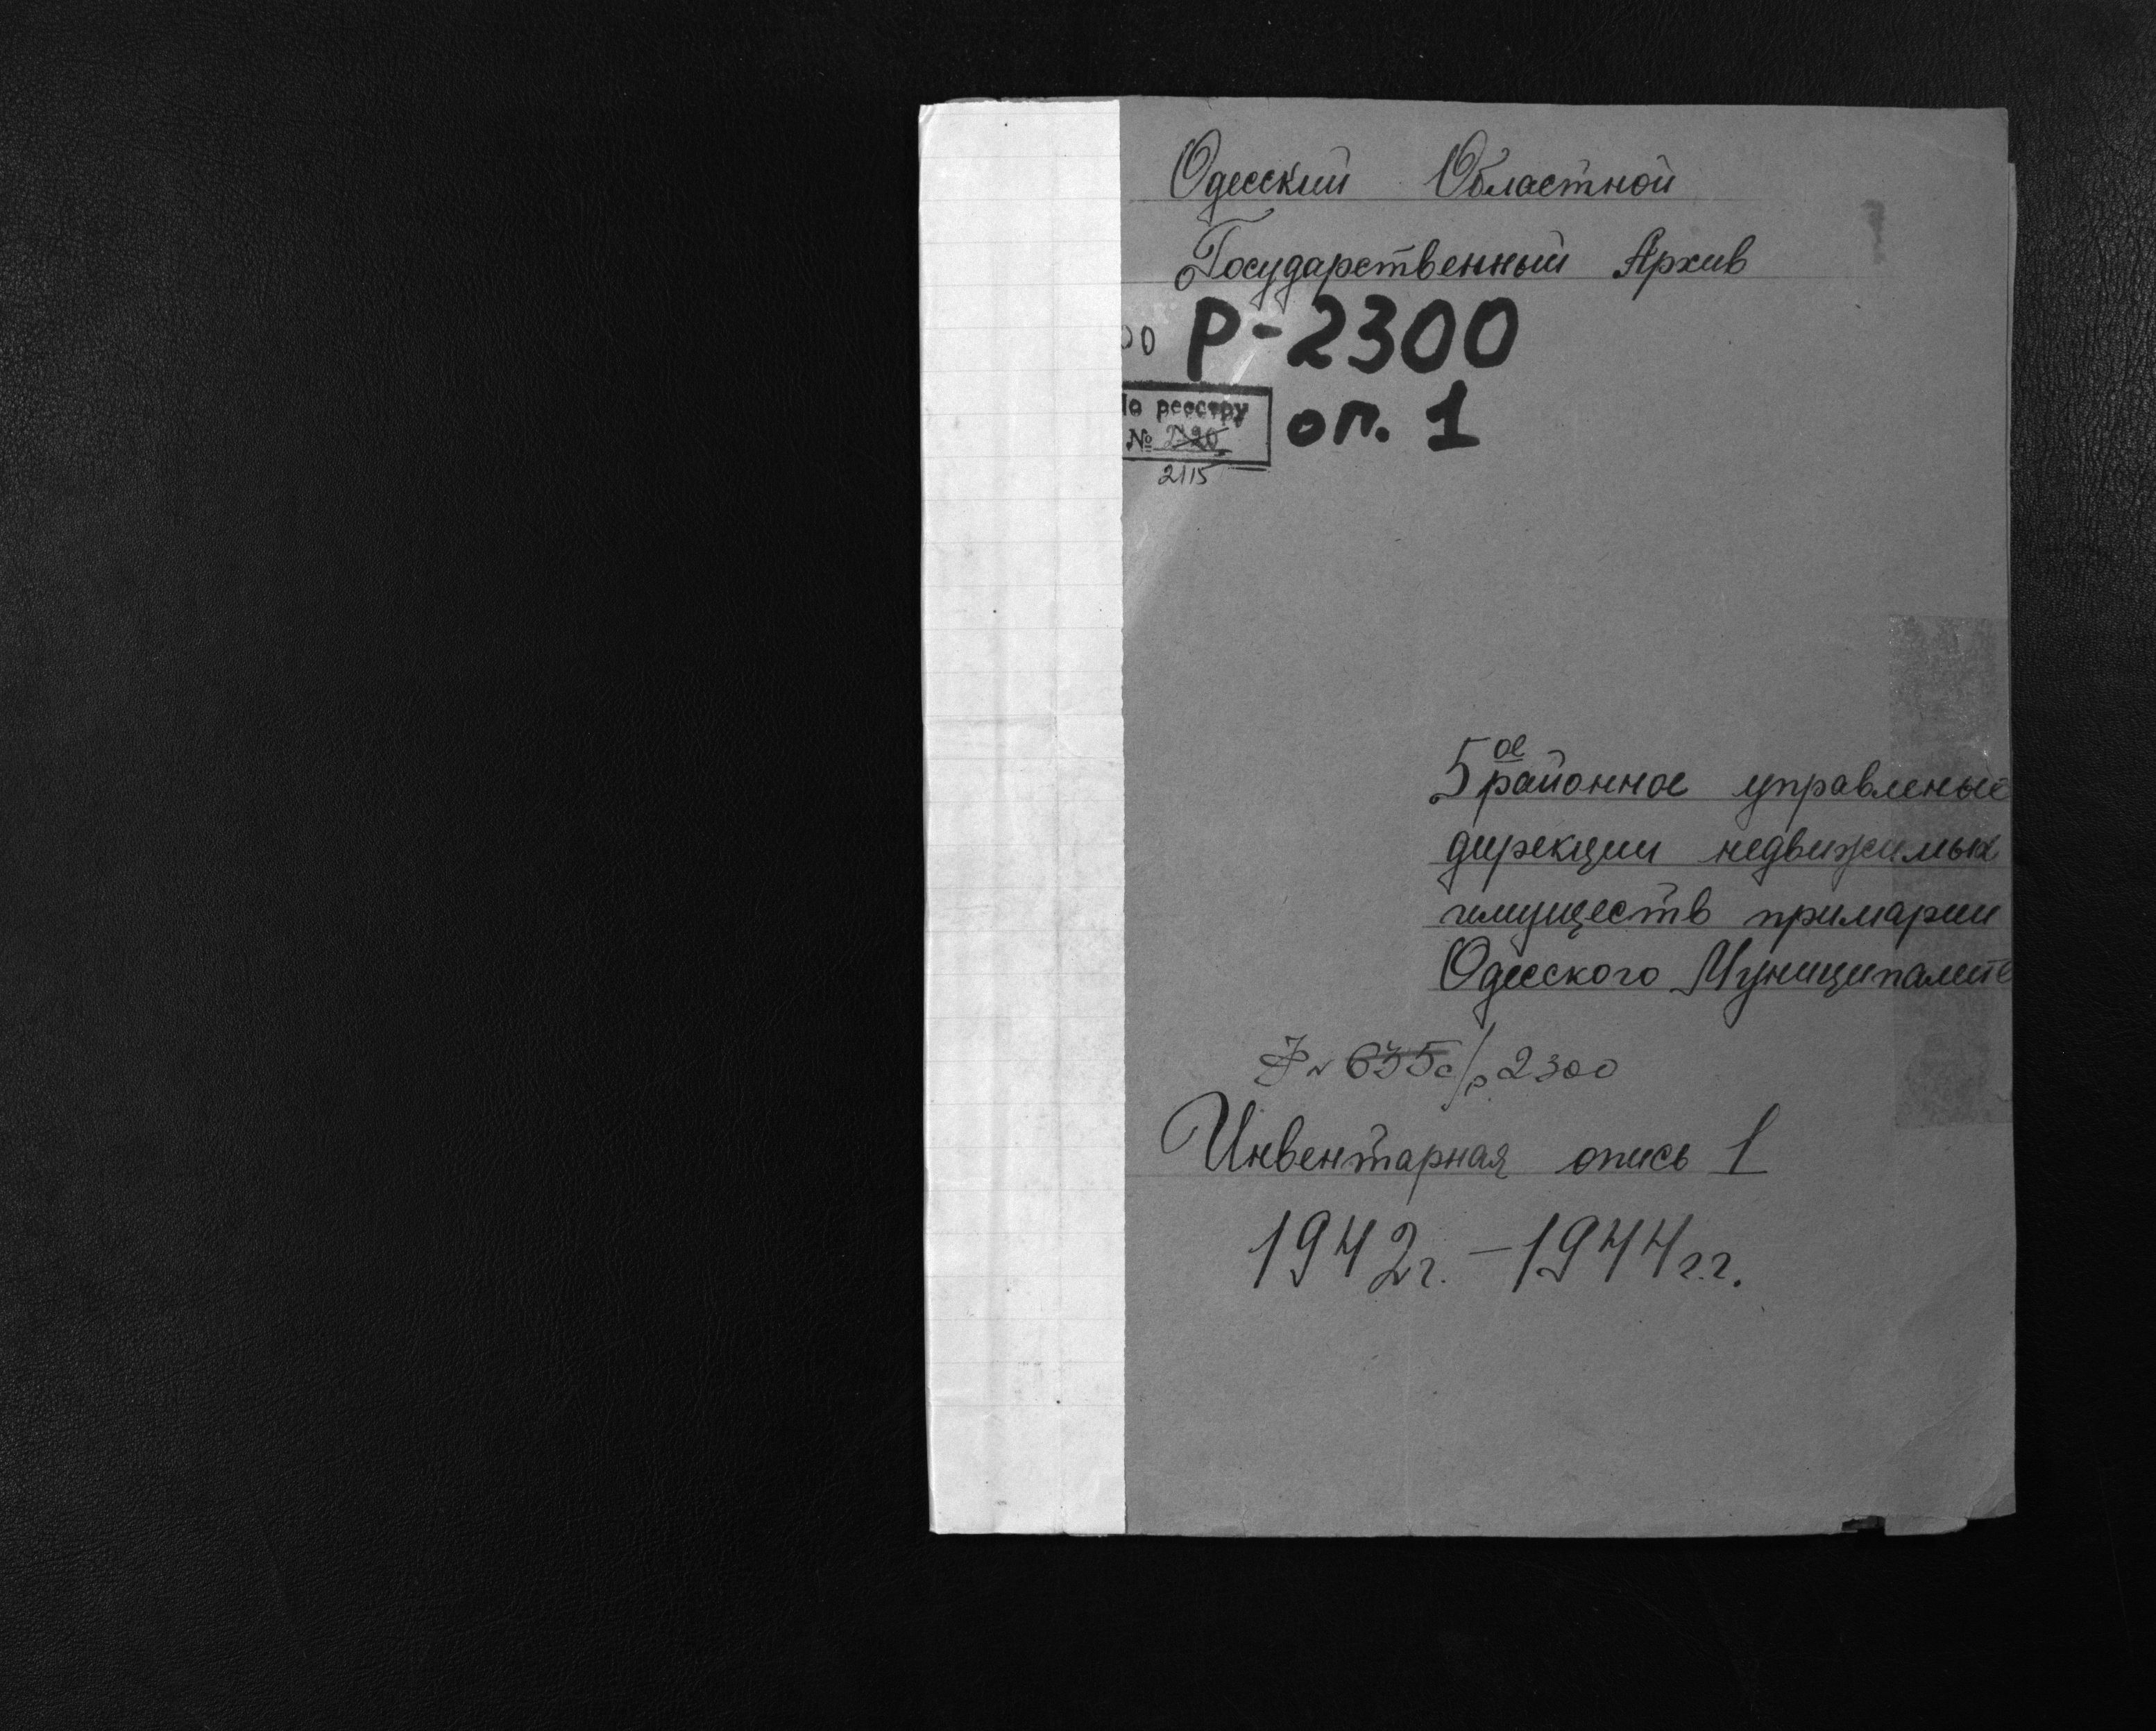 Одесский Областной
Государственный Архив
00 Р-2300
По реестру
№
2115
оп. 1
5ое районное управление
дирекции недвижимых
имуществ примарии
Одесского Муниципалите
Ф № 635с/р 2300
Инвентарная опись 1
1942г. - 1944 г.г.